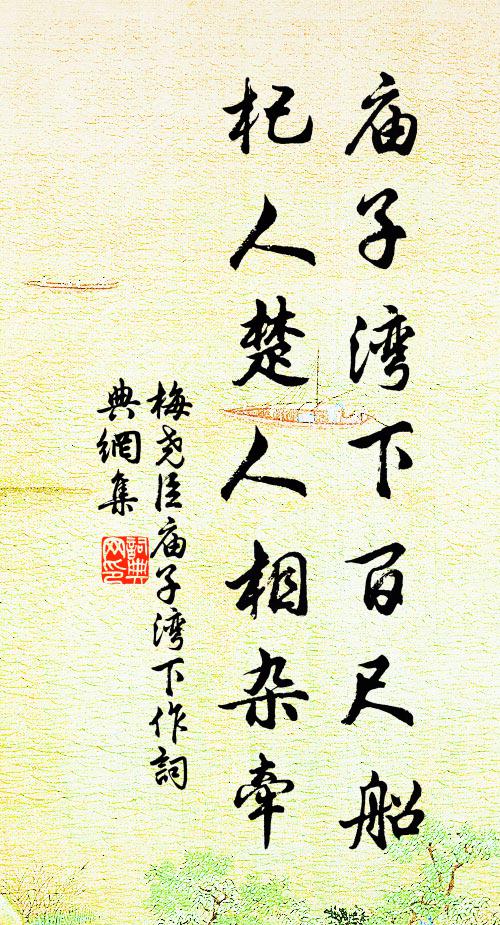 庙子湾下百尺船
杞人楚人相杂牵
梅尧臣庙子湾下作詞
典網集
詞典
网印